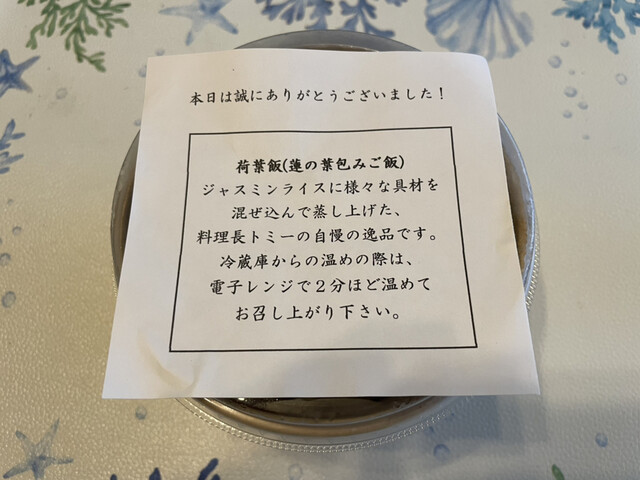 本日は誠にありがとうございました！
荷葉飯(蓮の葉包みご飯)
ジャスミンライスに様々な具材を
混ぜ込んで蒸し上げた、
料理長トミーの自慢の逸品です。
冷蔵庫からの温めの際は、
電子レンジで２分ほど温めて
お召し上がり下さい。